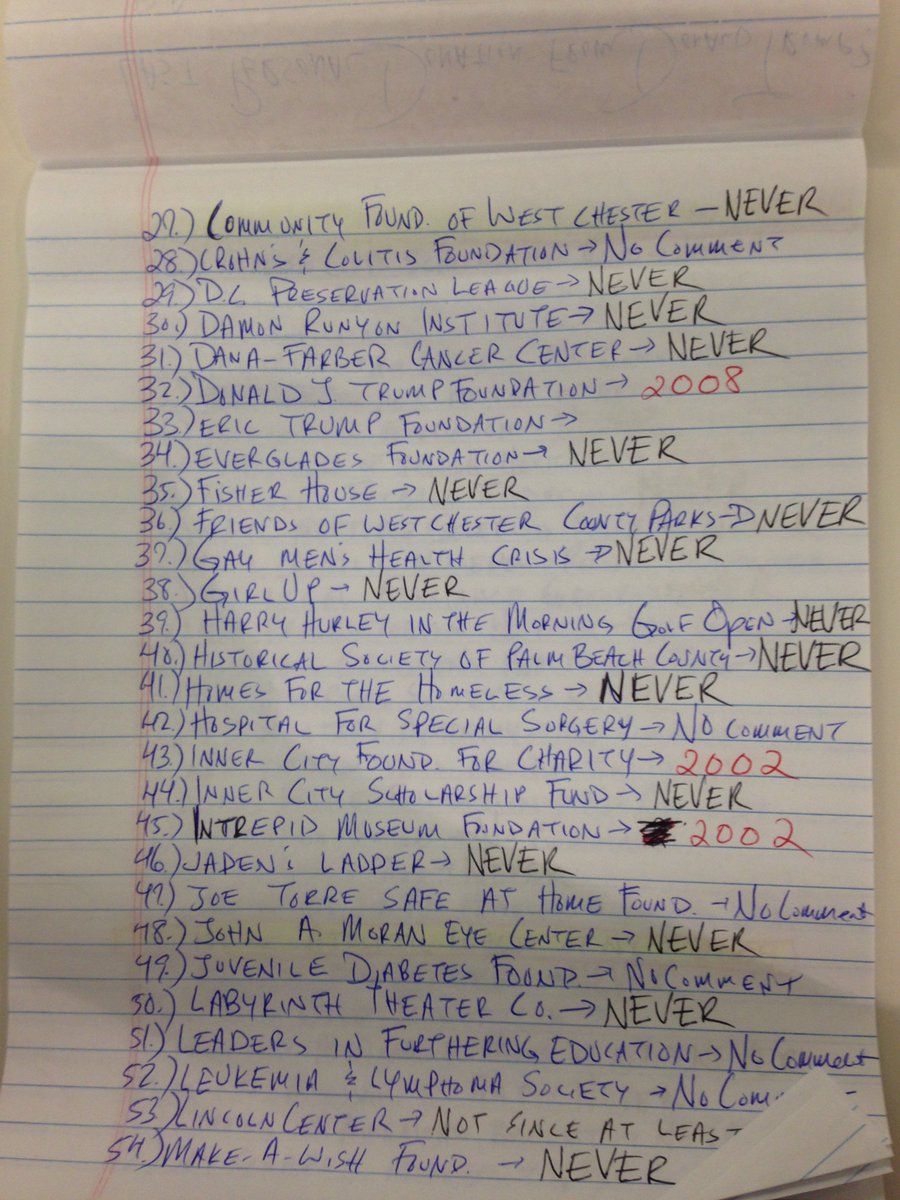 27.) COMMUNITY FOUND. OF WESTCHESTER — NEVER
28.) CROHN'S & COLITIS FOUNDATION → NO COMMENT
29.) D.C. PRESERVATION LEAGUE → NEVER
30.) DAMON RUNYON INSTITUTE → NEVER
31.) DANA-FARBER CANCER CENTER → NEVER
32.) DONALD J. TRUMP FOUNDATION → 2008
33.) ERIC TRUMP FOUNDATION →
34.) EVERGLADES FOUNDATION → NEVER
35.) FISHER HOUSE → NEVER
36.) FRIENDS OF WESTCHESTER COUNTY PARKS → NEVER
37.) GAY MEN'S HEALTH CRISIS → NEVER
38.) GIRL UP → NEVER
39.) HARRY HURLEY IN THE MORNING GOLF OPEN → NEVER
40.) HISTORICAL SOCIETY OF PALM BEACH COUNTY → NEVER
41.) HOMES FOR THE HOMELESS → NEVER
42.) HOSPITAL FOR SPECIAL SURGERY → NO COMMENT
43.) INNER CITY FOUND. FOR CHARITY → 2002
44.) INNER CITY SCHOLARSHIP FUND → NEVER
45.) INTREPID MUSEUM FOUNDATION → 2002
46.) JADEN'S LADDER → NEVER
47.) JOE TORRE SAFE AT HOME FOUND. → NO COMMENT
48.) JOHN A. MORAN EYE CENTER → NEVER
49.) JUVENILE DIABETES FOUND. → NO COMMENT
50.) LABYRINTH THEATER CO. → NEVER
51.) LEADERS IN FURTHERING EDUCATION → NO COMMENT
52.) LEUKEMIA & LYMPHOMA SOCIETY → NO COM
53.) LINCOLN CENTER → NOT SINCE AT LEAST
54.) MAKE-A-WISH FOUND. → NEVER